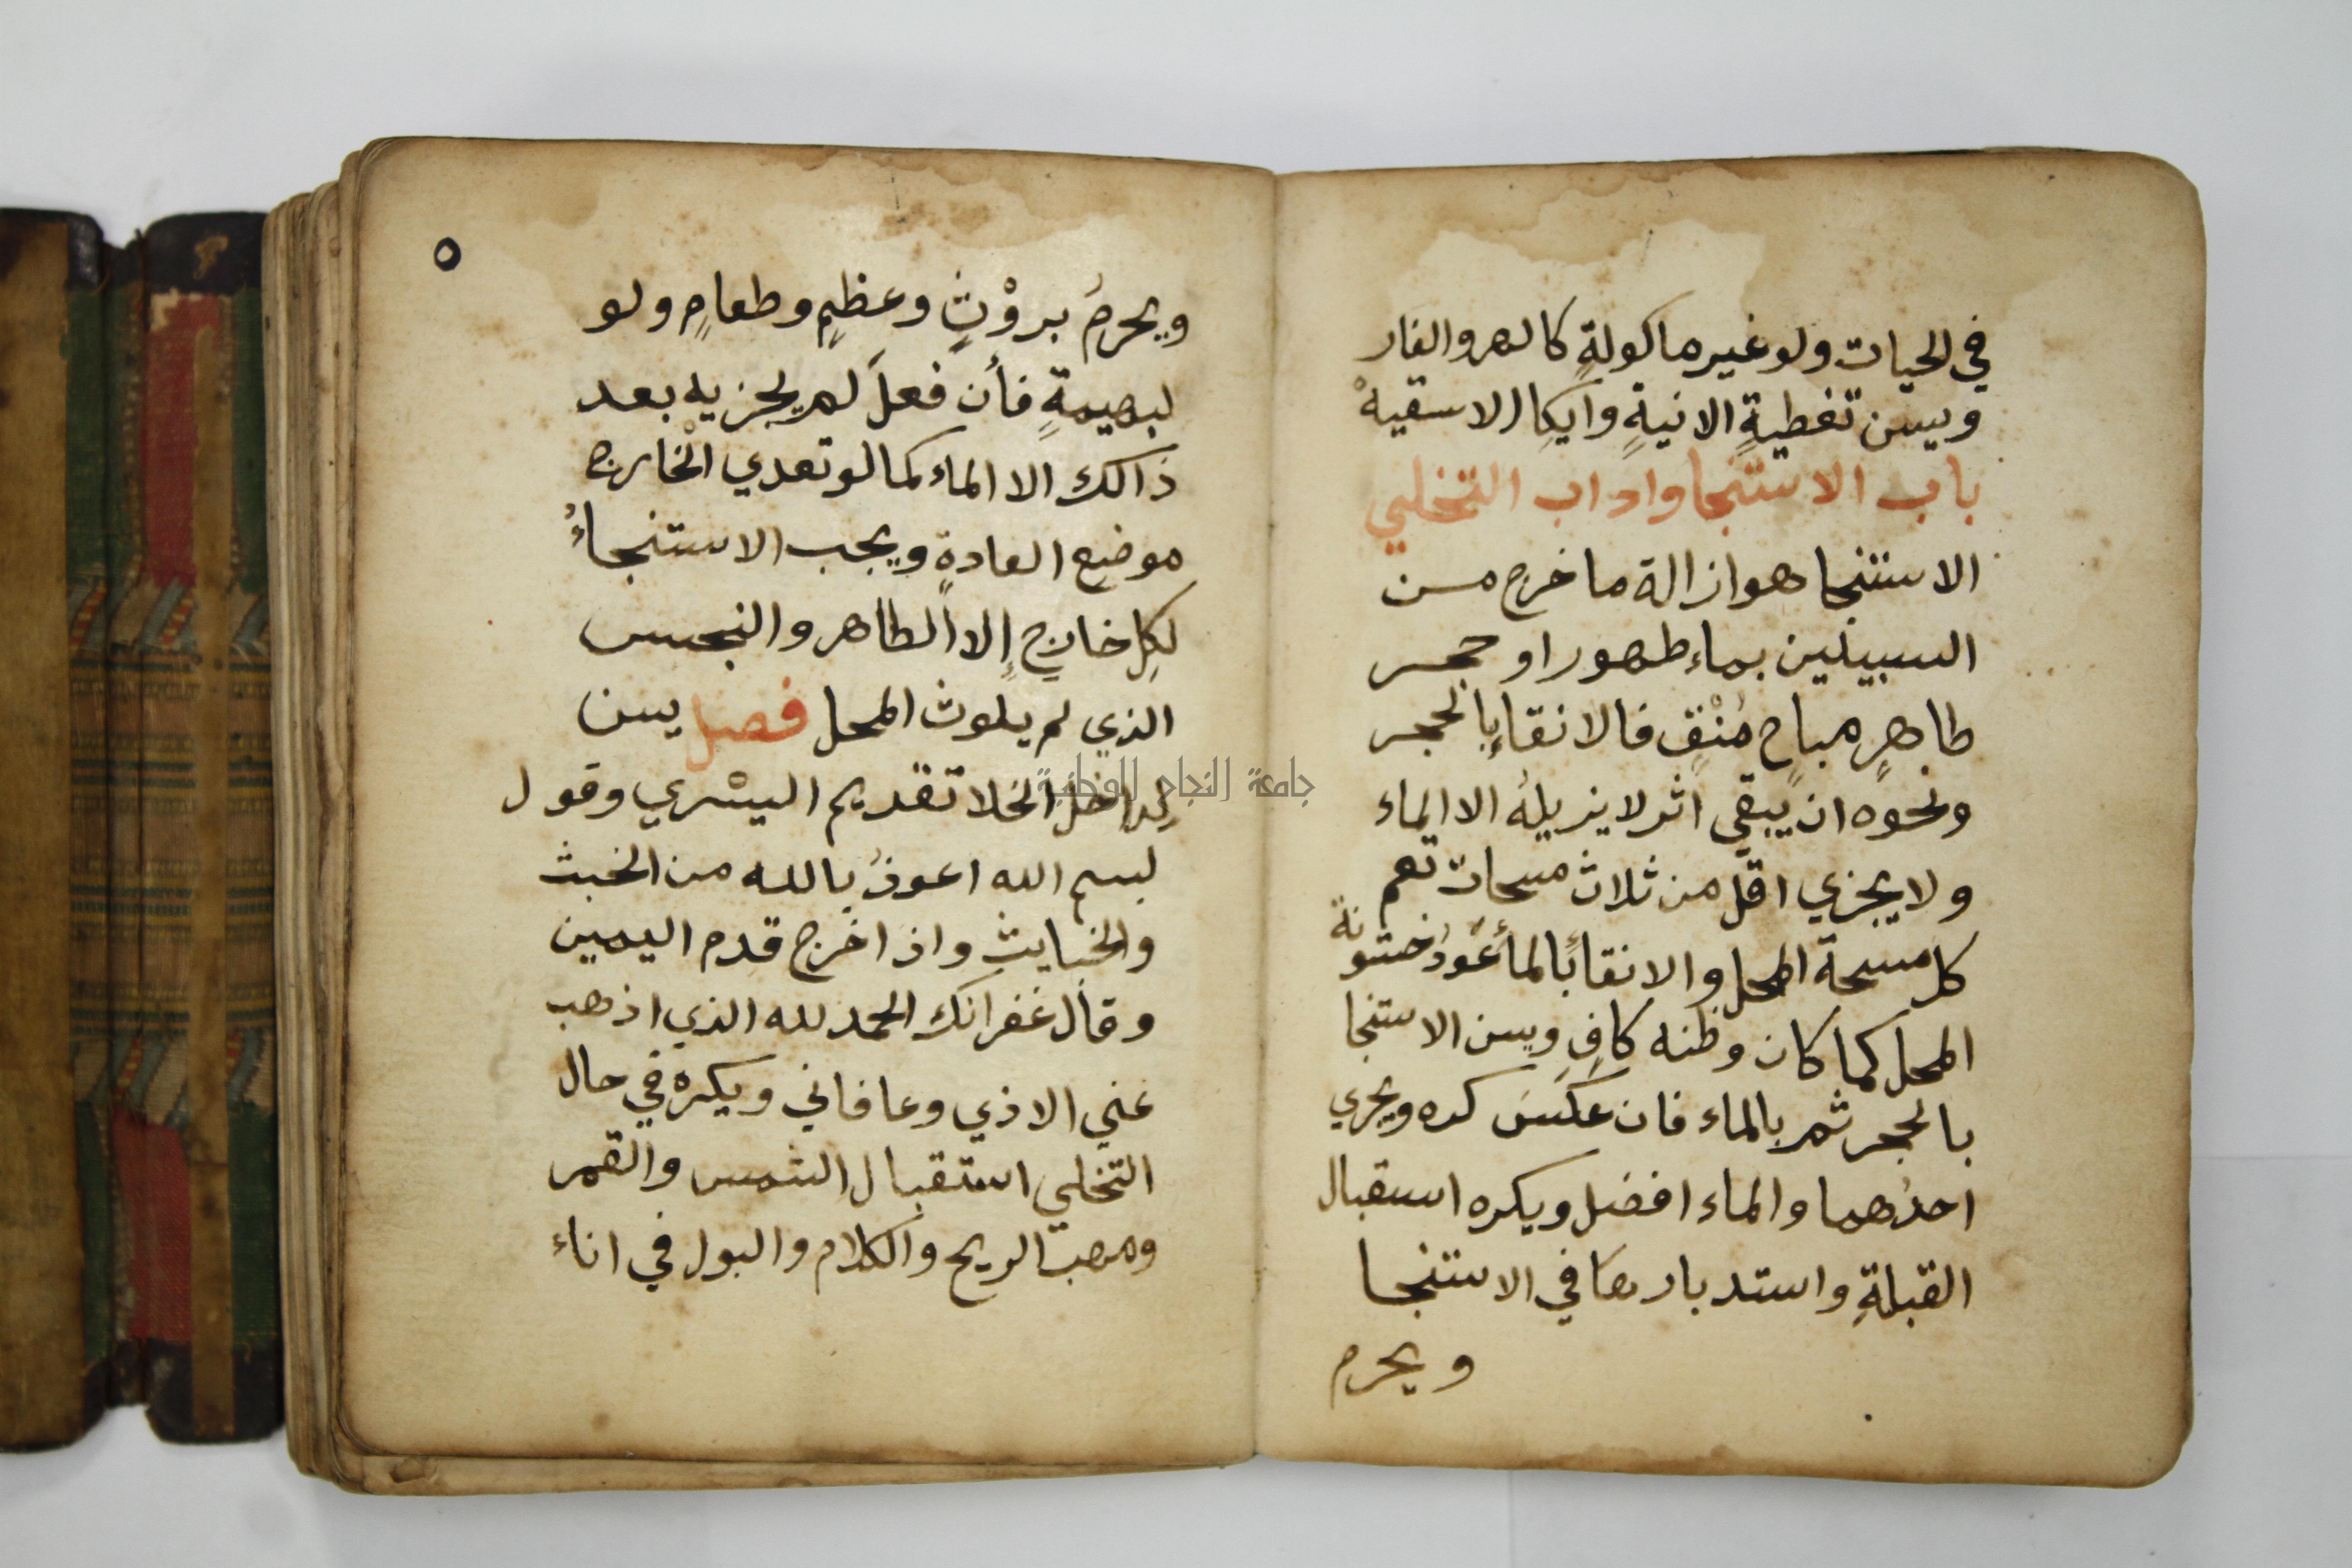 في الحيات ولو غير ماكولةٍ كالهر والفار
ويسن تغطيةِ الانيةِ وايكا الاسقيهْ
باب الاستنجا واداب التخلي
الاستنجا هو ازالة ما خرج من
السبيلين بماء طهور او حجر
طاهرٍ مباحٍ مُنْقٍ فالانقاءِ بالحجر
ونحوه ان يبقي اثر لا يزيلهُ الا الماء
ولا يجزي اقل من ثلاث مسحات تعم
كل مسحة المحل والانقا بالما عَودُ خشونة
المحل كما كان وظنه كافِ ويسن الاستنجا
بالحجر ثم بالماء فان عكَسَ كره ويجزي
احدُهما والماء افضل ويكره استقبال
القبلةِ واستدبارها في الاستنجا
ويحرم
٥
ويحرمُ بروْثٍ وعظمٍ وطعامٍ ولو
لبهيمةٍ فأن فعلَ لم يجزيه بعد
ذالك الا الماء كما لو تعدي الْخارج
موضع العادةِ ويجب الاستنجاءُ
لكلِ خارجٍ إلا الطاهر والنجس
الذي لم يلوث المحل فصل يسن
لِداخل الخلا تقديم اليسْري وقول
بسم الله اعوذُ بالله من الخبث
والخبايث واذا خرج قدم اليمين
وقال غفرانك الحمد لله الذي اذهب
عني الاذي وعافاني ويكره في حال
التخلي استقبال الشمس والقمر
ومهب الريح والكلام والبول في اناء
جامعة النجاح الوطنية